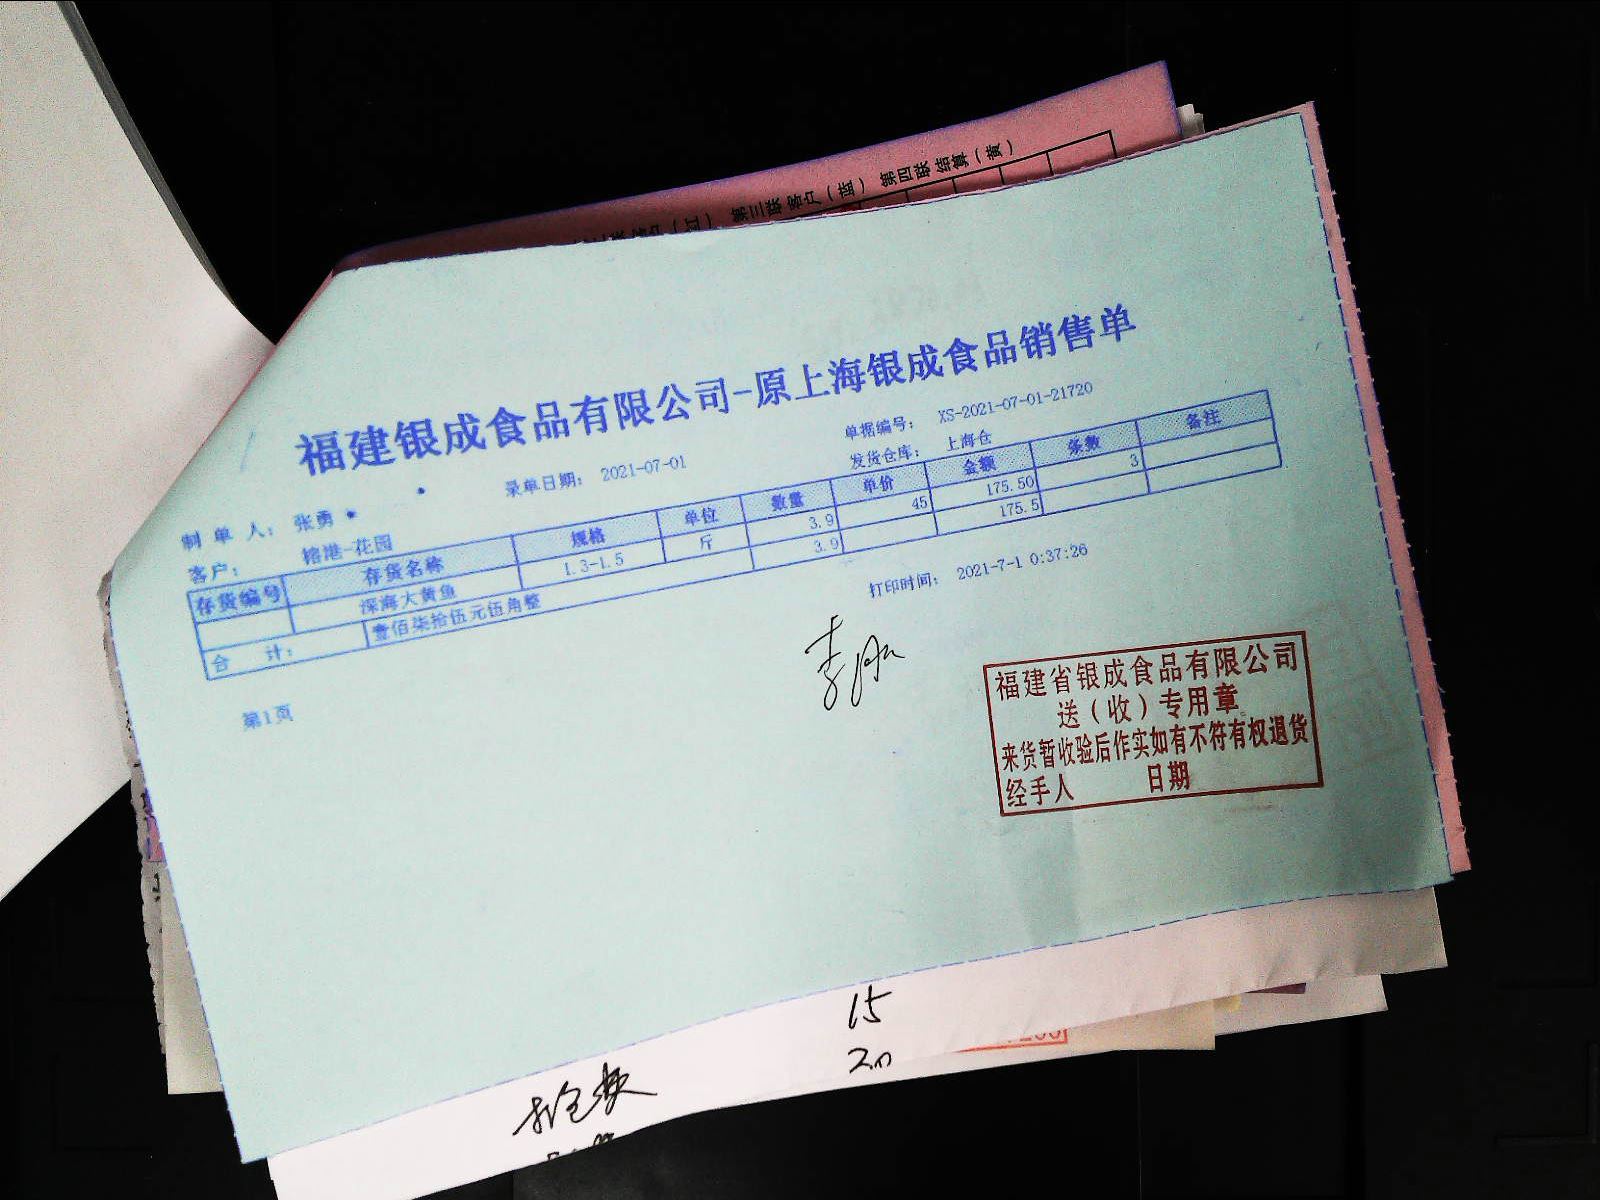 第三联客户(蓝) 第四联结算(黄)
福建银成食品有限公司-原上海银成食品销售单
制单人: 张勇 录单日期: 2021-07-01 单据编号: XS-2021-07-01-21720
客户: 榕港-花园 发货仓库: 上海仓
存货编号 存货名称 规格 单位 数量 单价 金额 条数 备注
深海大黄鱼 1.3-1.5 斤 3.9 45 175.50 3
合计: 壹佰柒拾伍元伍角整 3.9 175.5
打印时间: 2021-7-1 0:37:26
第1页
福建省银成食品有限公司
送(收)专用章
来货暂收验后作实如有不符有权退货
经手人 日期
15